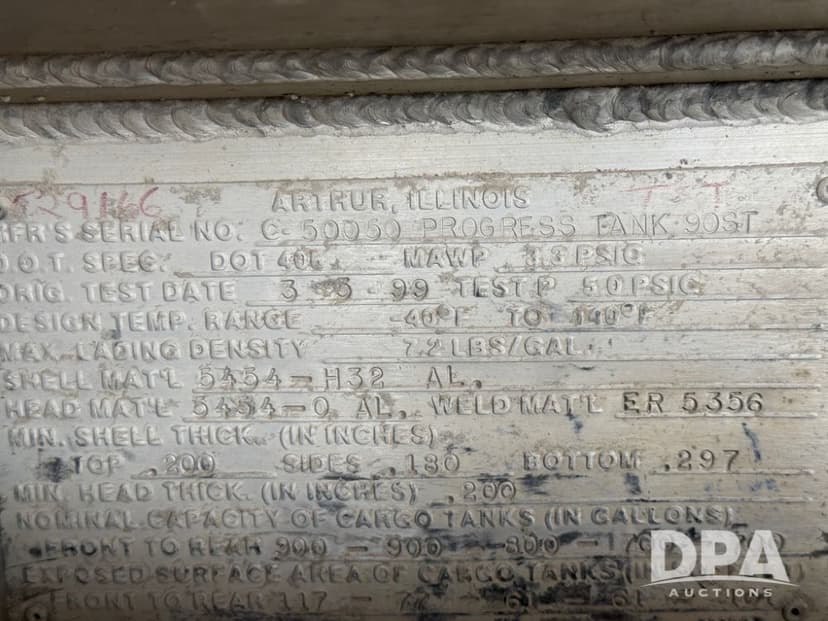 29166
ARTHUR, ILLINOIS
MFR'S SERIAL NO. C-50050 PROGRESS TANK 90ST
D.O.T. SPEC. DOT MAWP 3.3 PSIG
ORIG. TEST DATE 3-3-99 TEST P 5.0 PSIG
DESIGN TEMP. RANGE -40°F TO 140°F
MAX. LADING DENSITY 7.2 LBS/GAL.
SHELL MAT'L 5454-H32 AL.
HEAD MAT'L 5454-O AL. WELD MAT'L ER 5356
MIN. SHELL THICK. (IN INCHES)
TOP .200 SIDES .180 BOTTOM .297
MIN. HEAD THICK. (IN INCHES) .200
NOMINAL CAPACITY OF CARGO TANKS (IN GALLONS)
FRONT TO REAR 900 - 900 - 800 -
EXPOSED SURFACE AREA OF CARGO TANKS
FRONT TO REAR 117 -
DPA
AUCTIONS